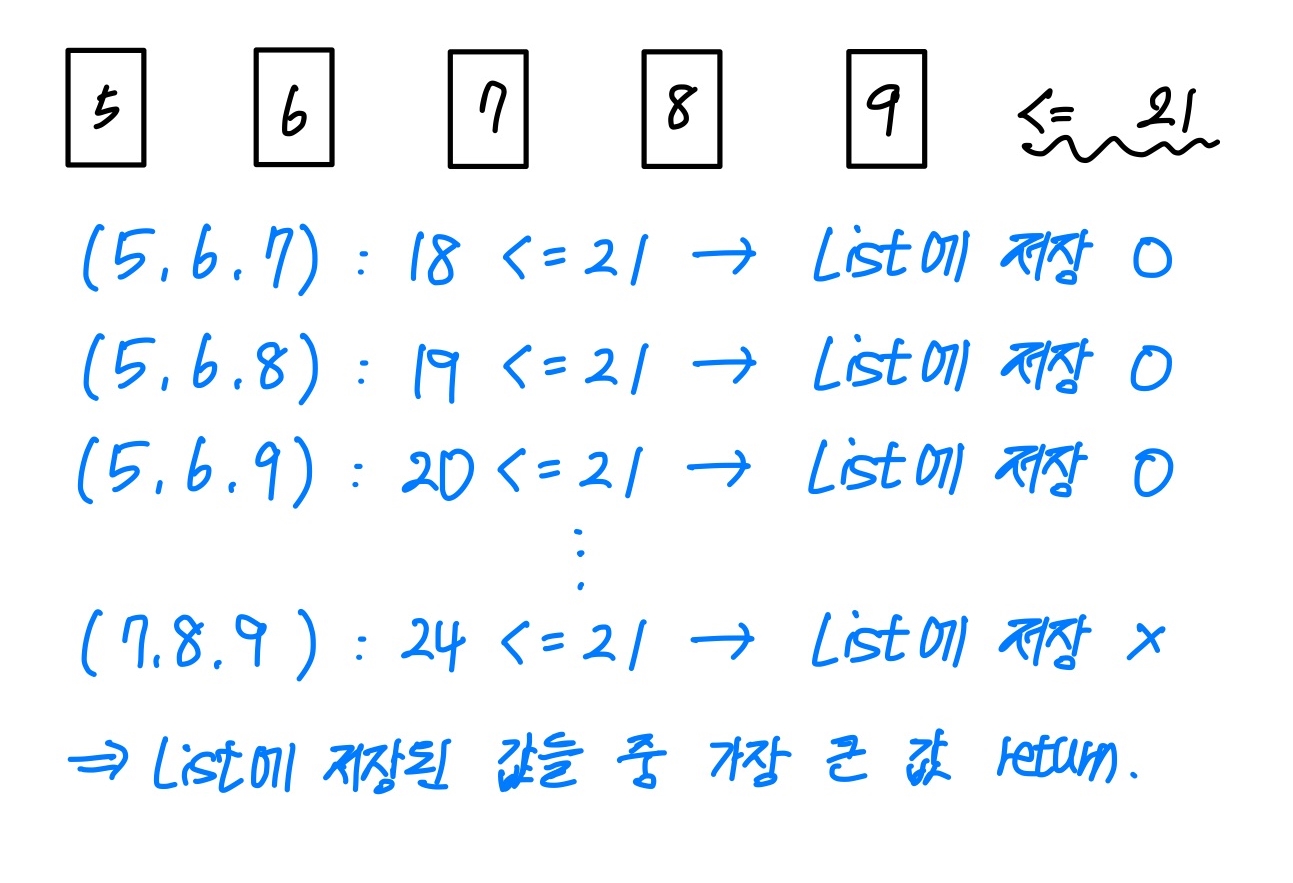 5 6 7 8 9 <= 21
(5, 6, 7) : 18 <= 21 → List에 저장 O
(5, 6, 8) : 19 <= 21 → List에 저장 O
(5, 6, 9) : 20 <= 21 → List에 저장 O
⋮
(7, 8, 9) : 24 <= 21 → List에 저장 X
⇒ List에 저장된 값들 중 가장 큰 값 return.